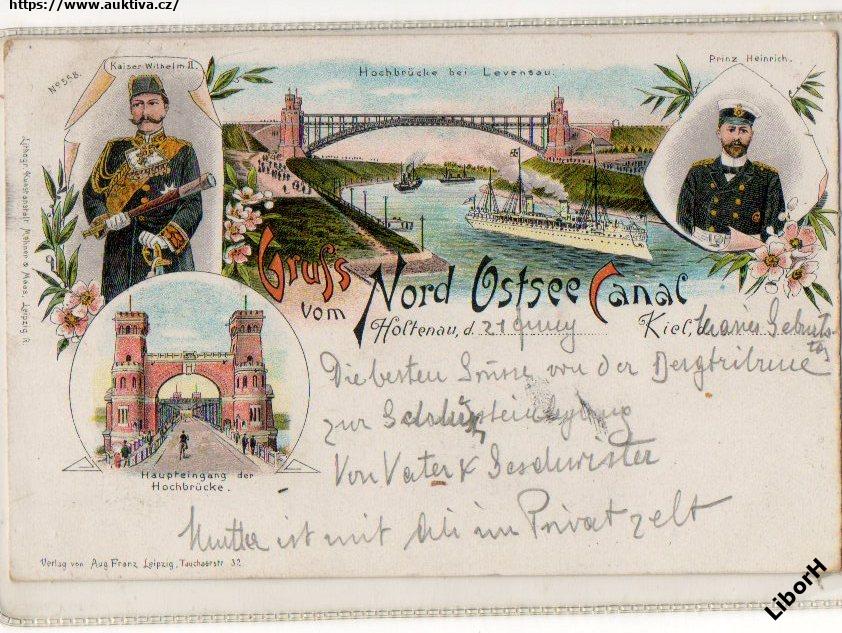 https://www.auktiva.cz/
No 558.
Kaiser Wilhelm II.
Hochbrücke bei Levensau.
Prinz Heinrich.
Lithogr. Kunstanstalt Möhner & Maas, Leipzig R.
Gruss
vom Nord Ostsee Canal
Holtenau, d. 21 Juny Kiel, Maries Geburts-
tag
Die besten Grüsse von der Bergtribüne
zur Schlußsteinlegung
Von Vater & Geschwister
Mutter ist mit im Privatzelt
Haupteingang der
Hochbrücke.
Verlag von Aug. Franz Leipzig, Tauchaerstr 32
LiborH